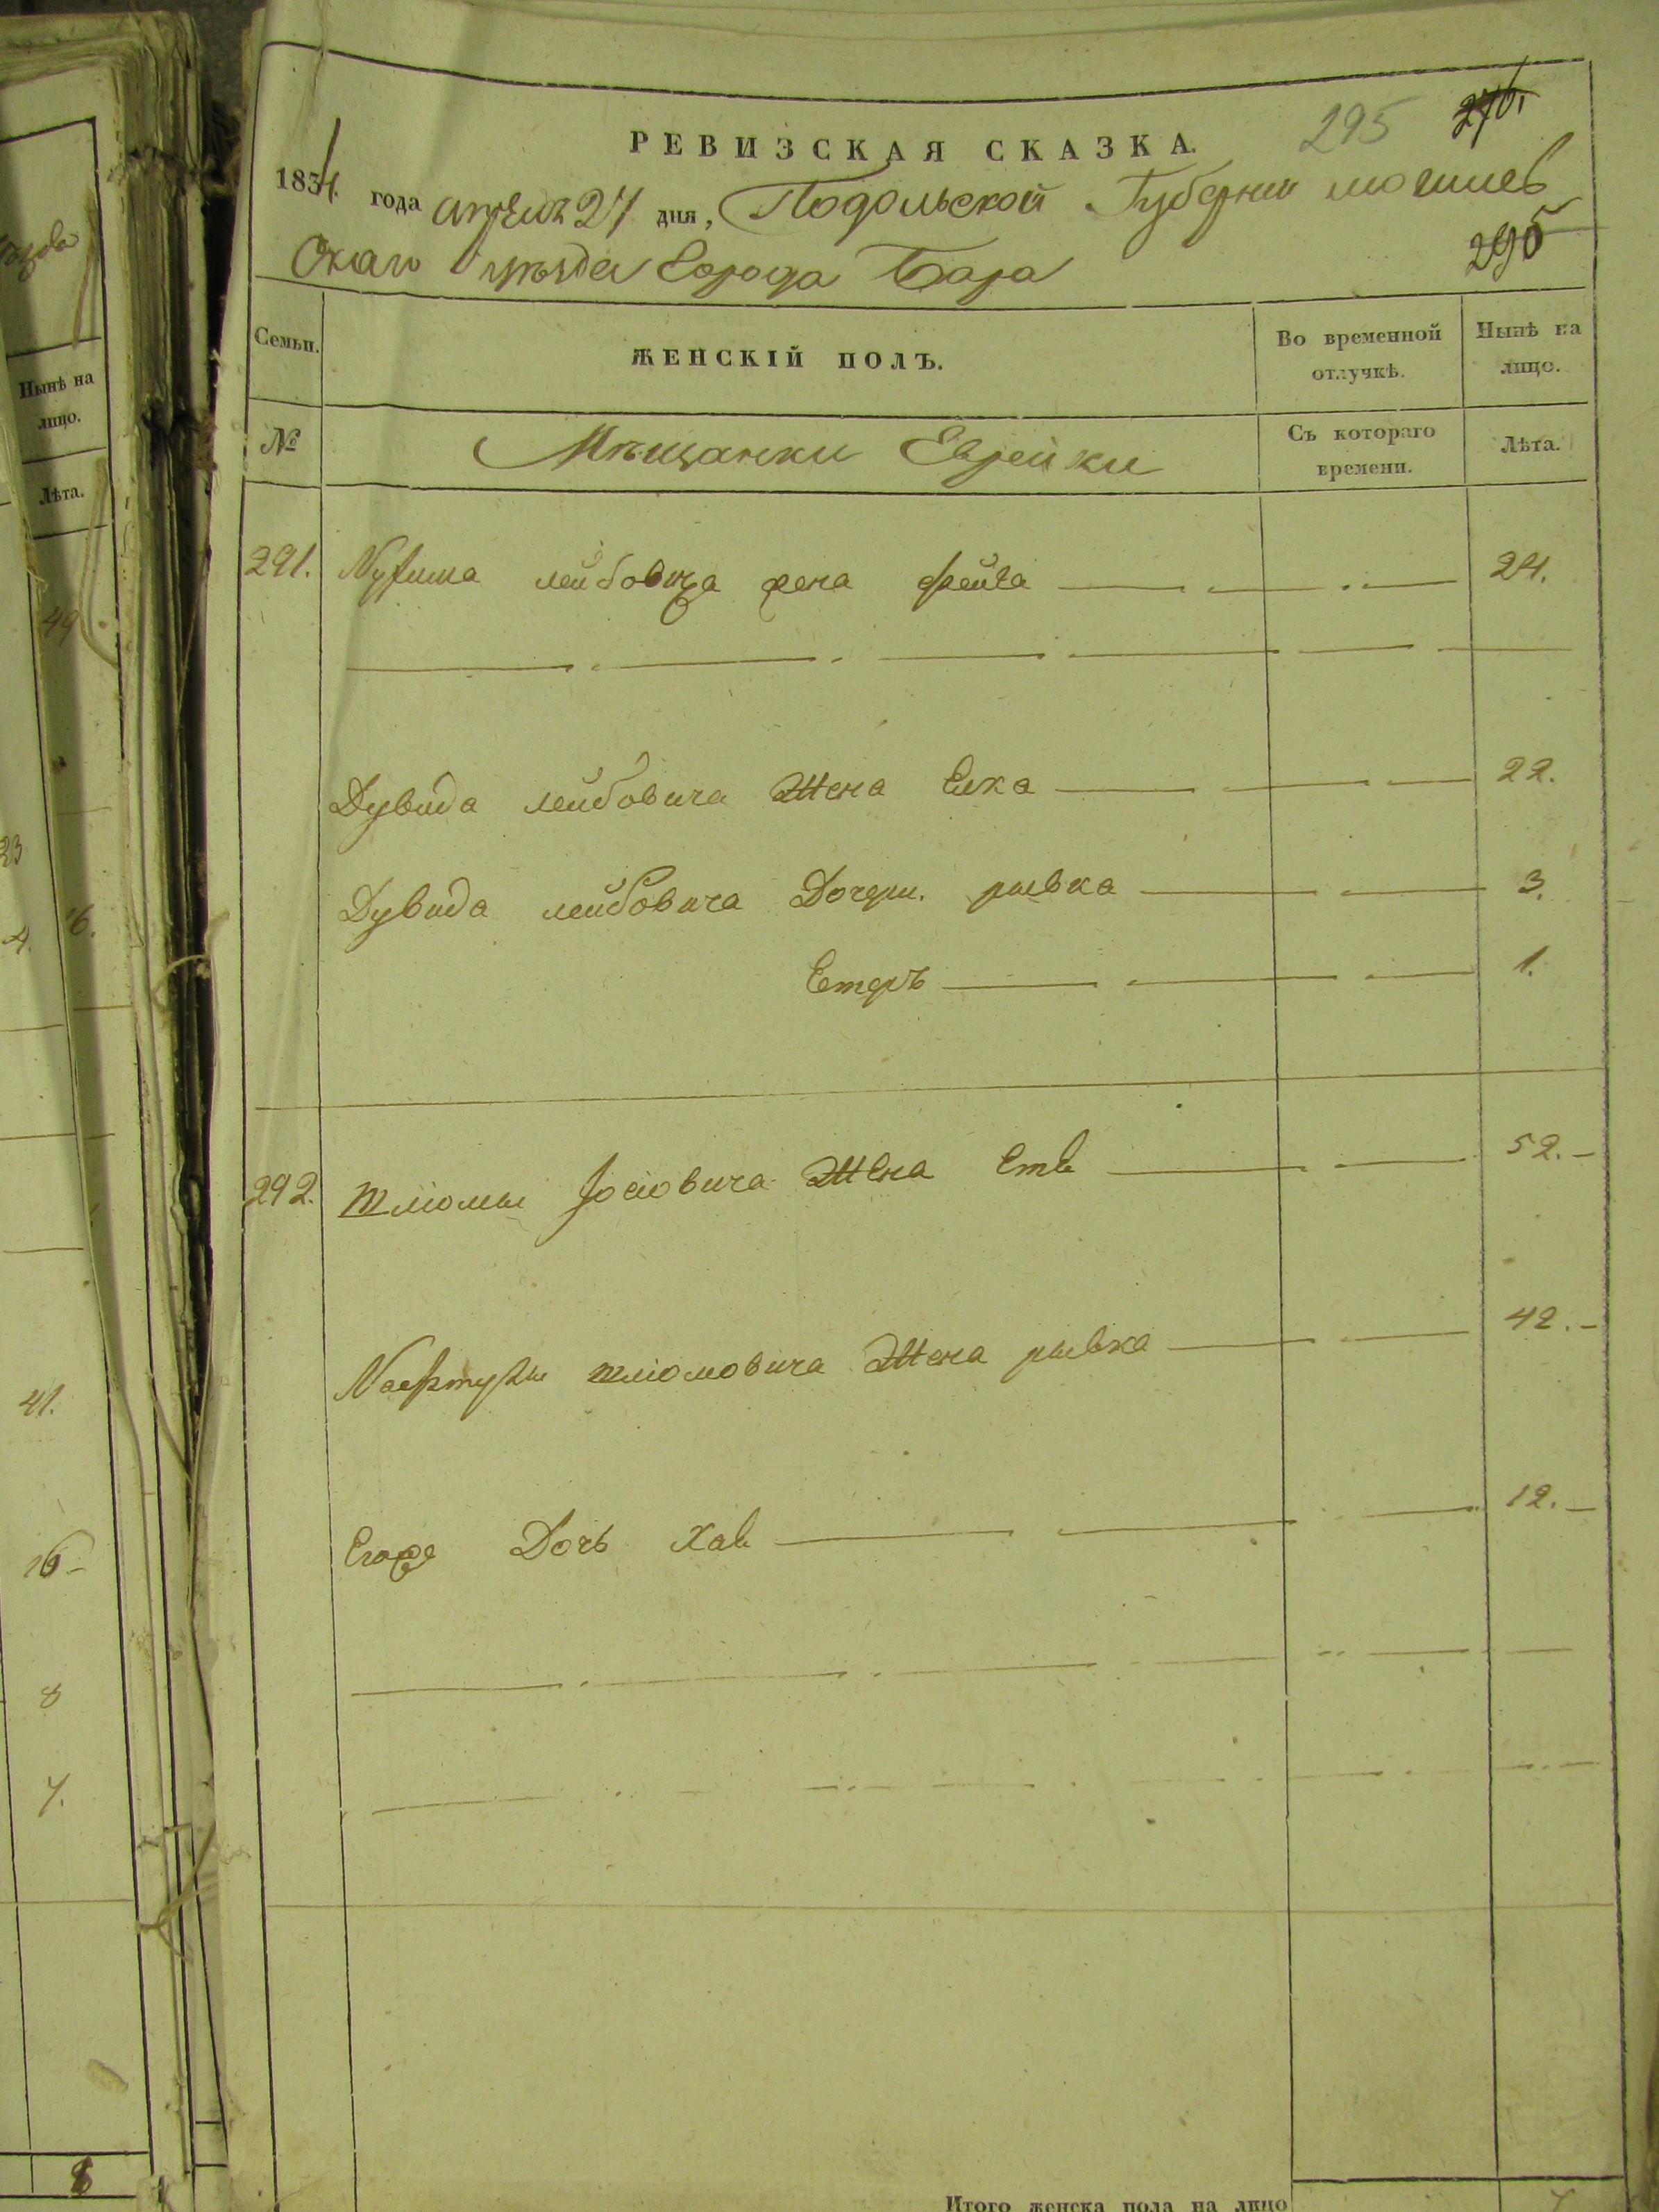 295 276.
РЕВИЗСКАЯ СКАЗКА.
1834. года апреля 27 дня, Подольской Губернии могилев
скаго уезда города Бара
295
Семьи. ЖЕНСКІЙ ПОЛЪ. Во временной отлучкѣ. Нынѣ на лицо.
№ Мѣщанки Еврейки Съ котораго времени. Лѣта.
291. лейбовича жена фейга 24.
Дувида лейбовича Жена Елка 22.
Дувида лейбовича Дочери. рывка 3.
Естеръ 1.
292. Шлiомы Iосiовича Жена 52.
шлiомовича Жена рывка 42.
Егоже Дочь 12.
Итого женска пола на лицо 7
Нынѣ на
лицо.
Лѣта.
49
23
16.
4.
41.
16
8
7.
8